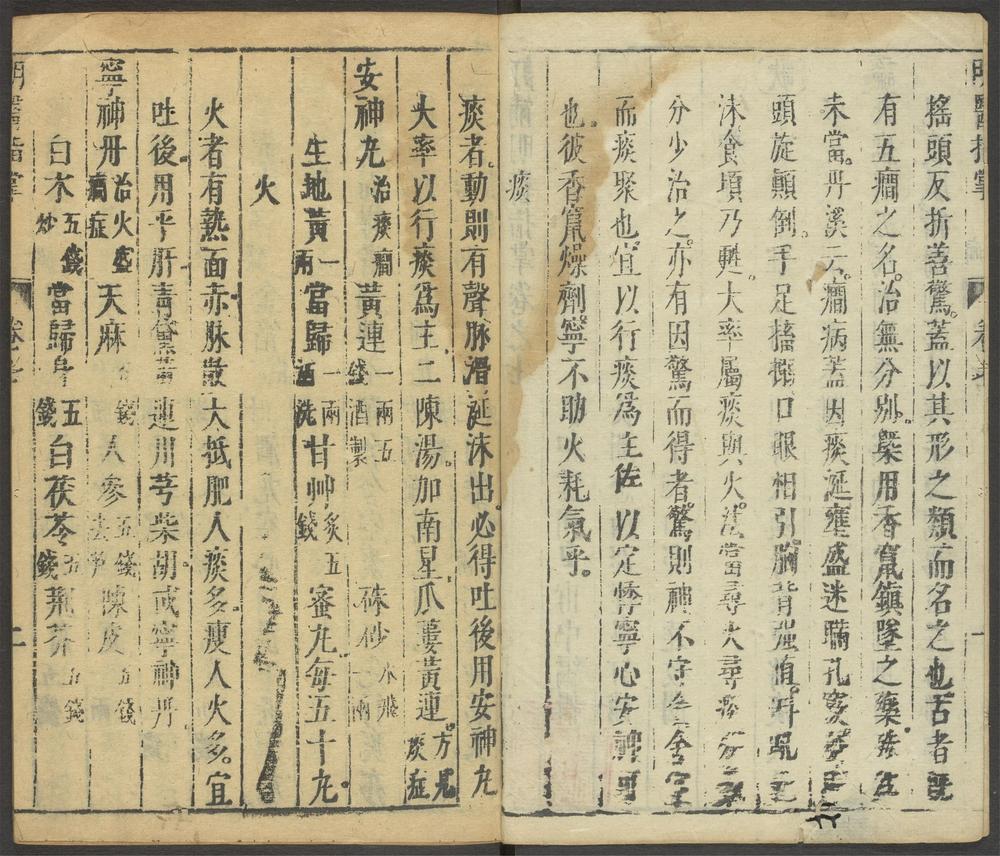 搖頭反折善驚蓋以其形之類而名之也舌者
有五癇之名治無分別槩用香竄鎮墜之藥殊
未當丹溪云癇病蓋因痰涎壅盛迷瞞孔竅
頭旋顛倒手足搐搦口眼相引胸背強直叫吼
沫食頃乃甦大率屬痰與火法當尋火尋痰分
分少治之亦有因驚而得者驚則神不守舍
而痰聚也宜以行痰為主佐以定驚寧心安神可
也彼香竄燥劑寧不助火耗氣乎
痰
痰者動則有聲脉滑涎沫出必得吐後用安神丸
大率以行痰為主二陳湯加南星瓜蔞黃連方見痰症
安神丸治痰癇黃連一兩五錢酒製硃砂水飛一兩
生地黃一兩當歸一兩酒洗甘艸炙五錢蜜丸每五十丸
火
火者有熱面赤脉數大抵肥人痰多瘦人火多宜
吐後用平肝青黛黃連川芎柴胡或寧神丹
寧神丹治火盛癇症天麻錢人參五錢去蘆陳皮五錢
白朮五錢炒當歸身五錢白茯苓五錢荊芥五錢
明醫指掌
卷